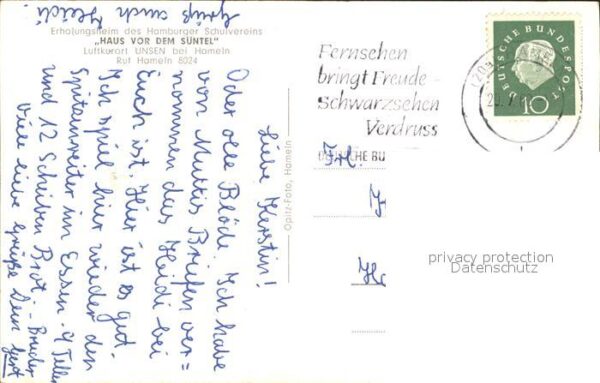 Erholungsheim des Hamburger Schulvereins
„HAUS VOR DEM SÜNTEL"
Luftkurort UNSEN bei Hameln
Ruf Hameln 8024
Liebe Kerstin!
Oder olle Blöde. Ich habe
von Muttis Briefen ver=
nommen das Heidi bei
Euch ist. Hier ist es gut.
Ich spiel hier wieder den
Spitzenreiter im Essen. 4 Teller
und 12 Scheiben Brot. - Bruder
Viele liebe Grüße Dein Gerd
Grüß auch Heidi!
Opitz-Foto, Hameln
Fernsehen
bringt Freude -
Schwarzsehen
Verdruss
DEUTSCHE BU
DEUTSCHE BUNDESPOST
10
Frl.
privacy protection
Datenschutz